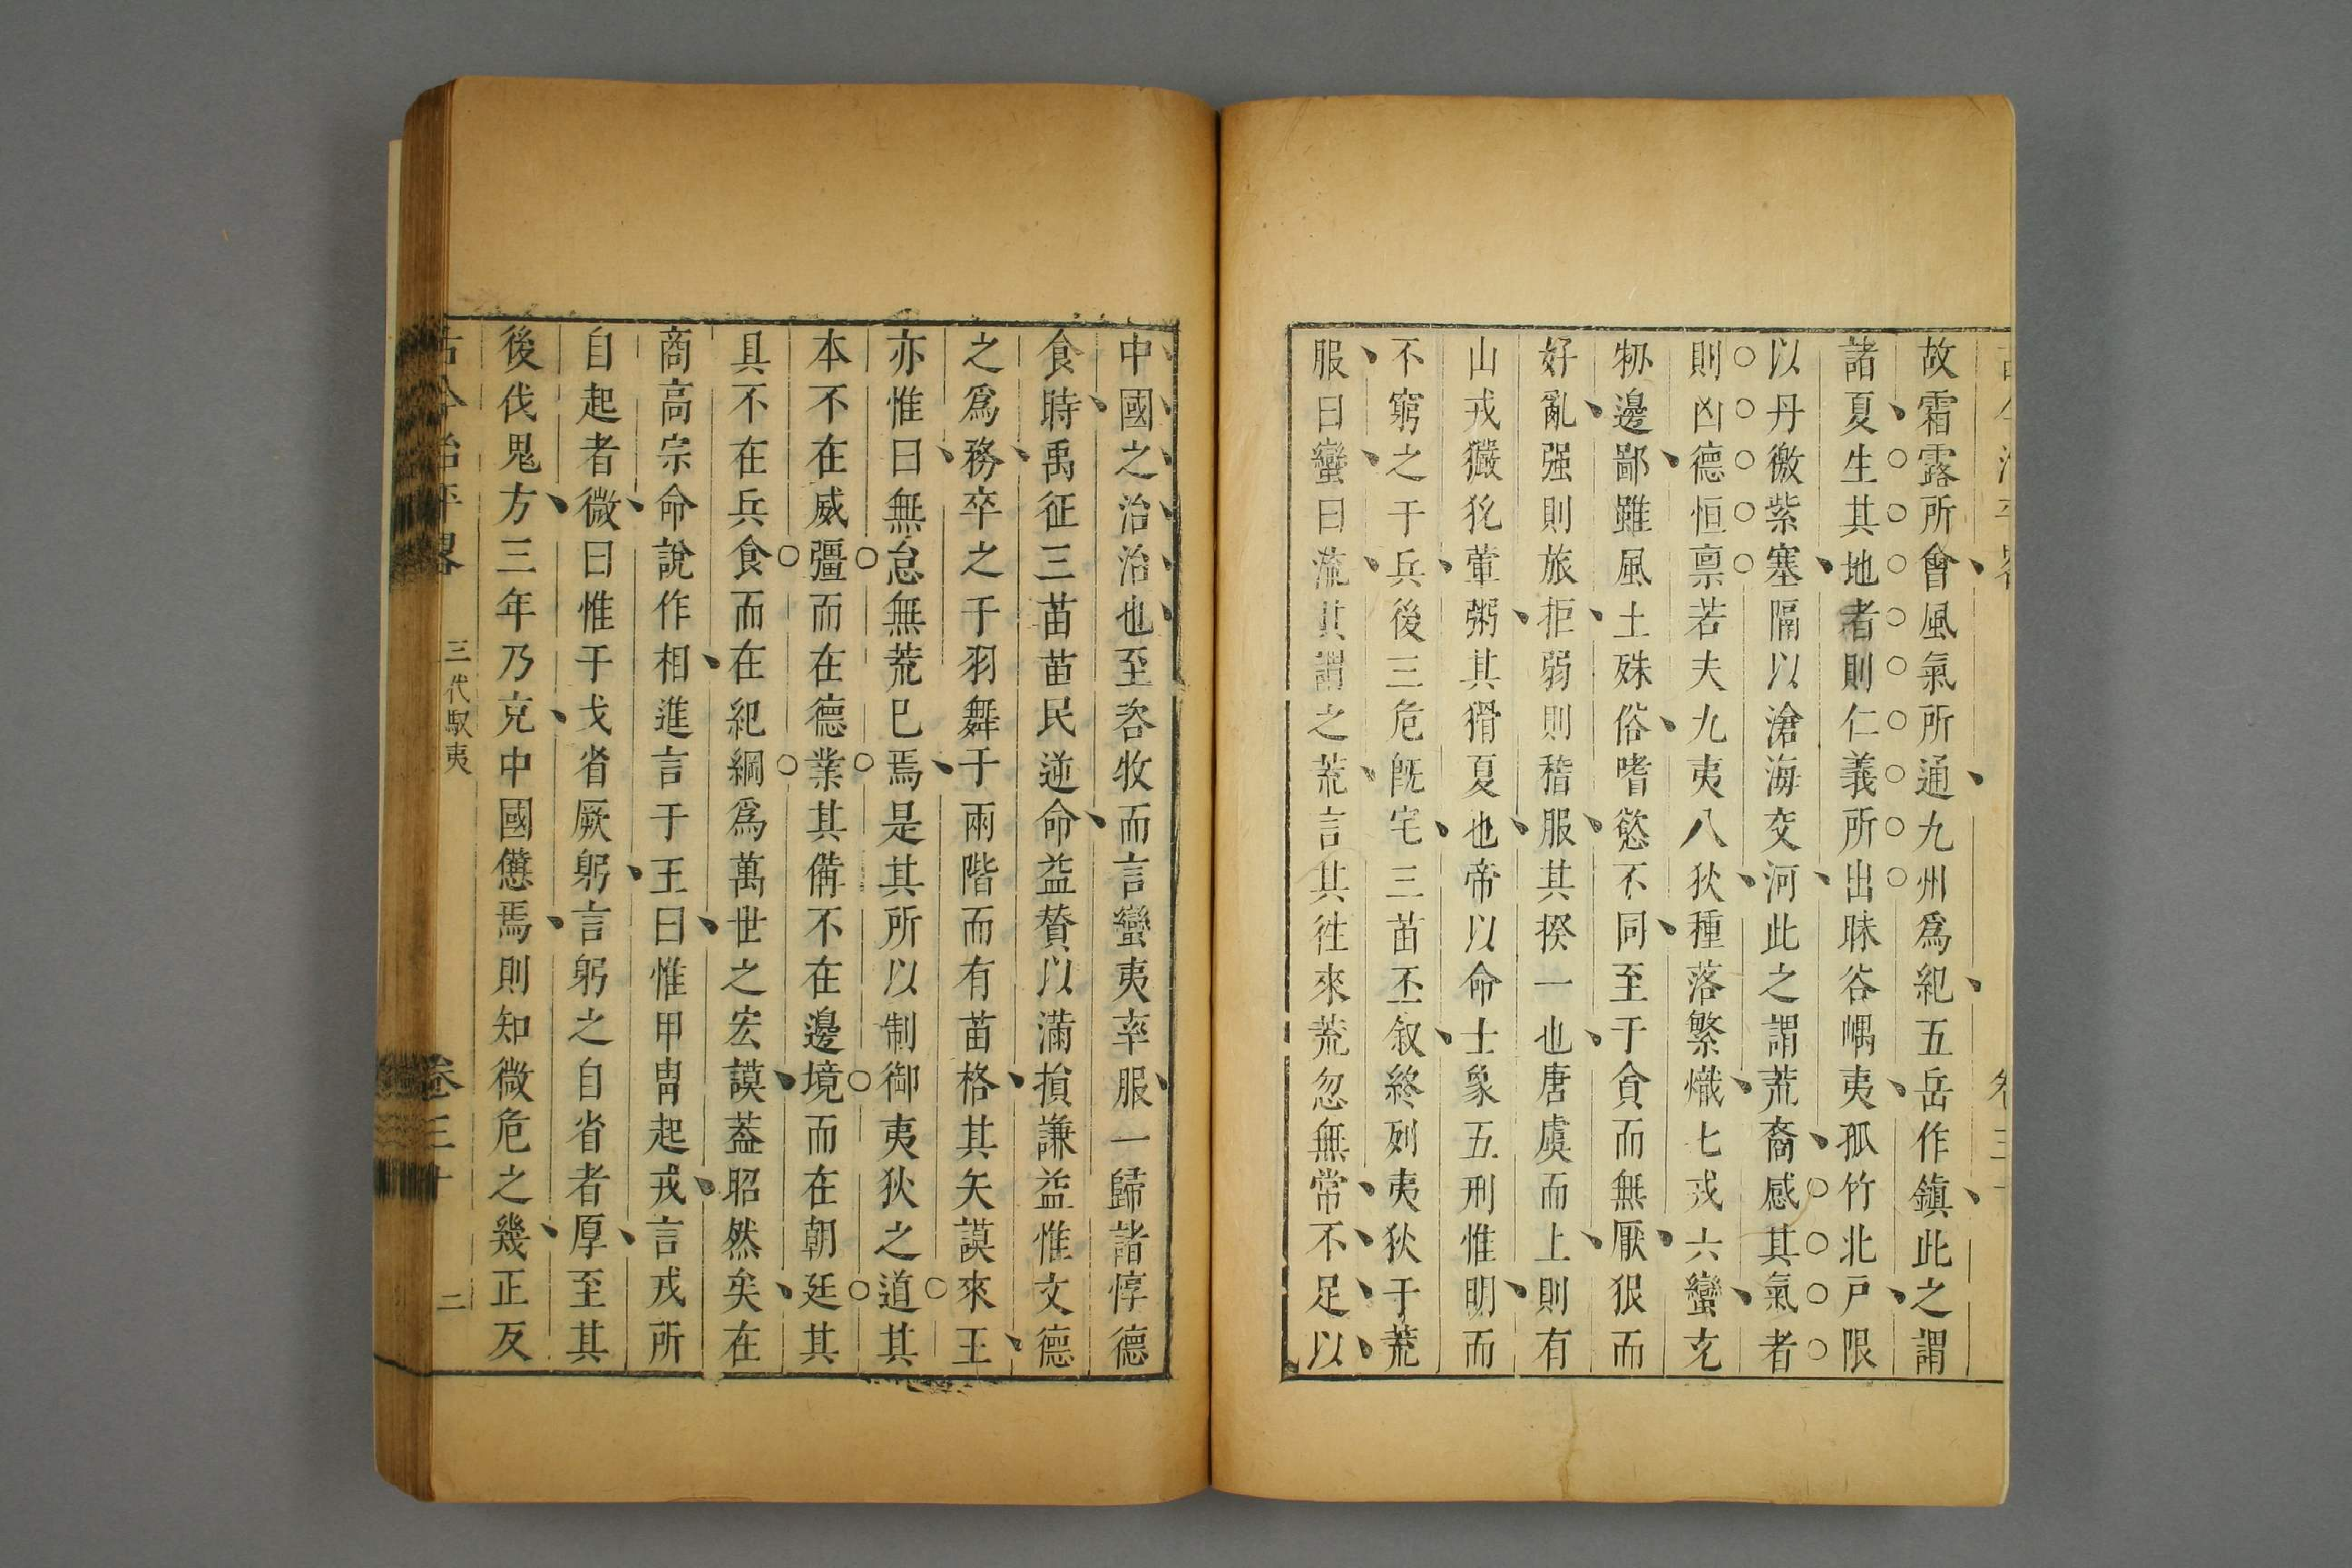 故霜露所會風氣所通九州爲紀五岳作鎮此之謂
諸夏生其地者則仁義所出昧谷嵎夷孤竹北戸限
以丹徼紫塞隔以滄海交河此之謂荒裔感其氣者
則凶德恒禀若夫九夷八狄種落繁熾七戎六蠻充
物邊鄙雖風土殊俗嗜慾不同至于貪而無厭狠而
好亂强則旅拒弱則稽服其揆一也唐虞而上則有
山戎獫狁葷粥其猾夏也帝以命士象五刑惟明而
不窮之于兵後三危旣宅三苗丕叙終列夷狄于荒
服曰蠻曰流其謂之荒言其徃來荒忽無常不足以
中國之治治也至咨牧而言蠻夷率服一歸諸惇德
食時禹征三苗苗民逆命益賛以滿損謙益惟文德
之爲務卒之于羽舞于兩階而有苗格其矢謨來王
亦惟曰無怠無荒已焉是其所以制御夷狄之道其
本不在威彊而在德業其備不在邊境而在朝廷其
具不在兵食而在紀綱爲萬世之宏謨葢昭然矣在
商高宗命說作相進言于王曰惟甲冑起戎言戎所
自起者微曰惟干戈省厥躬言躬之自省者厚至其
後伐鬼方三年乃克中國憊焉則知微危之幾正反
古今治平畧 三代馭夷 卷三十 二